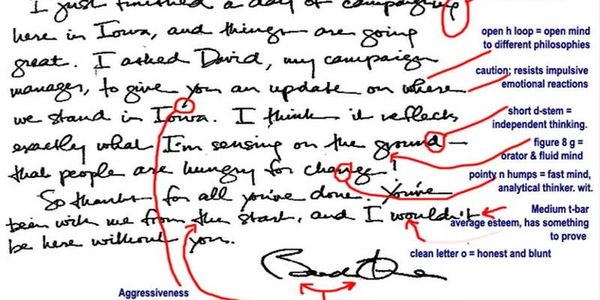 I just finished a day of campaigning
here in Iowa, and things are going
great. I asked David, my campaign
manager, to give you an update on where
we stand in Iowa. I think it reflects
exactly what I'm sensing on the ground —
that people are hungry for change!
So thanks for all you've done. You've
been with me from the start, and I wouldn't
be here without you.
open h loop = open mind
to different philosophies
caution; resists impulsive
emotional reactions
short d-stem =
independent thinking.
figure 8 g =
orator & fluid mind
pointy n humps = fast mind,
analytical thinker. wit.
Medium t-bar
average esteem, has something
to prove
clean letter o = honest and blunt
Aggressiveness